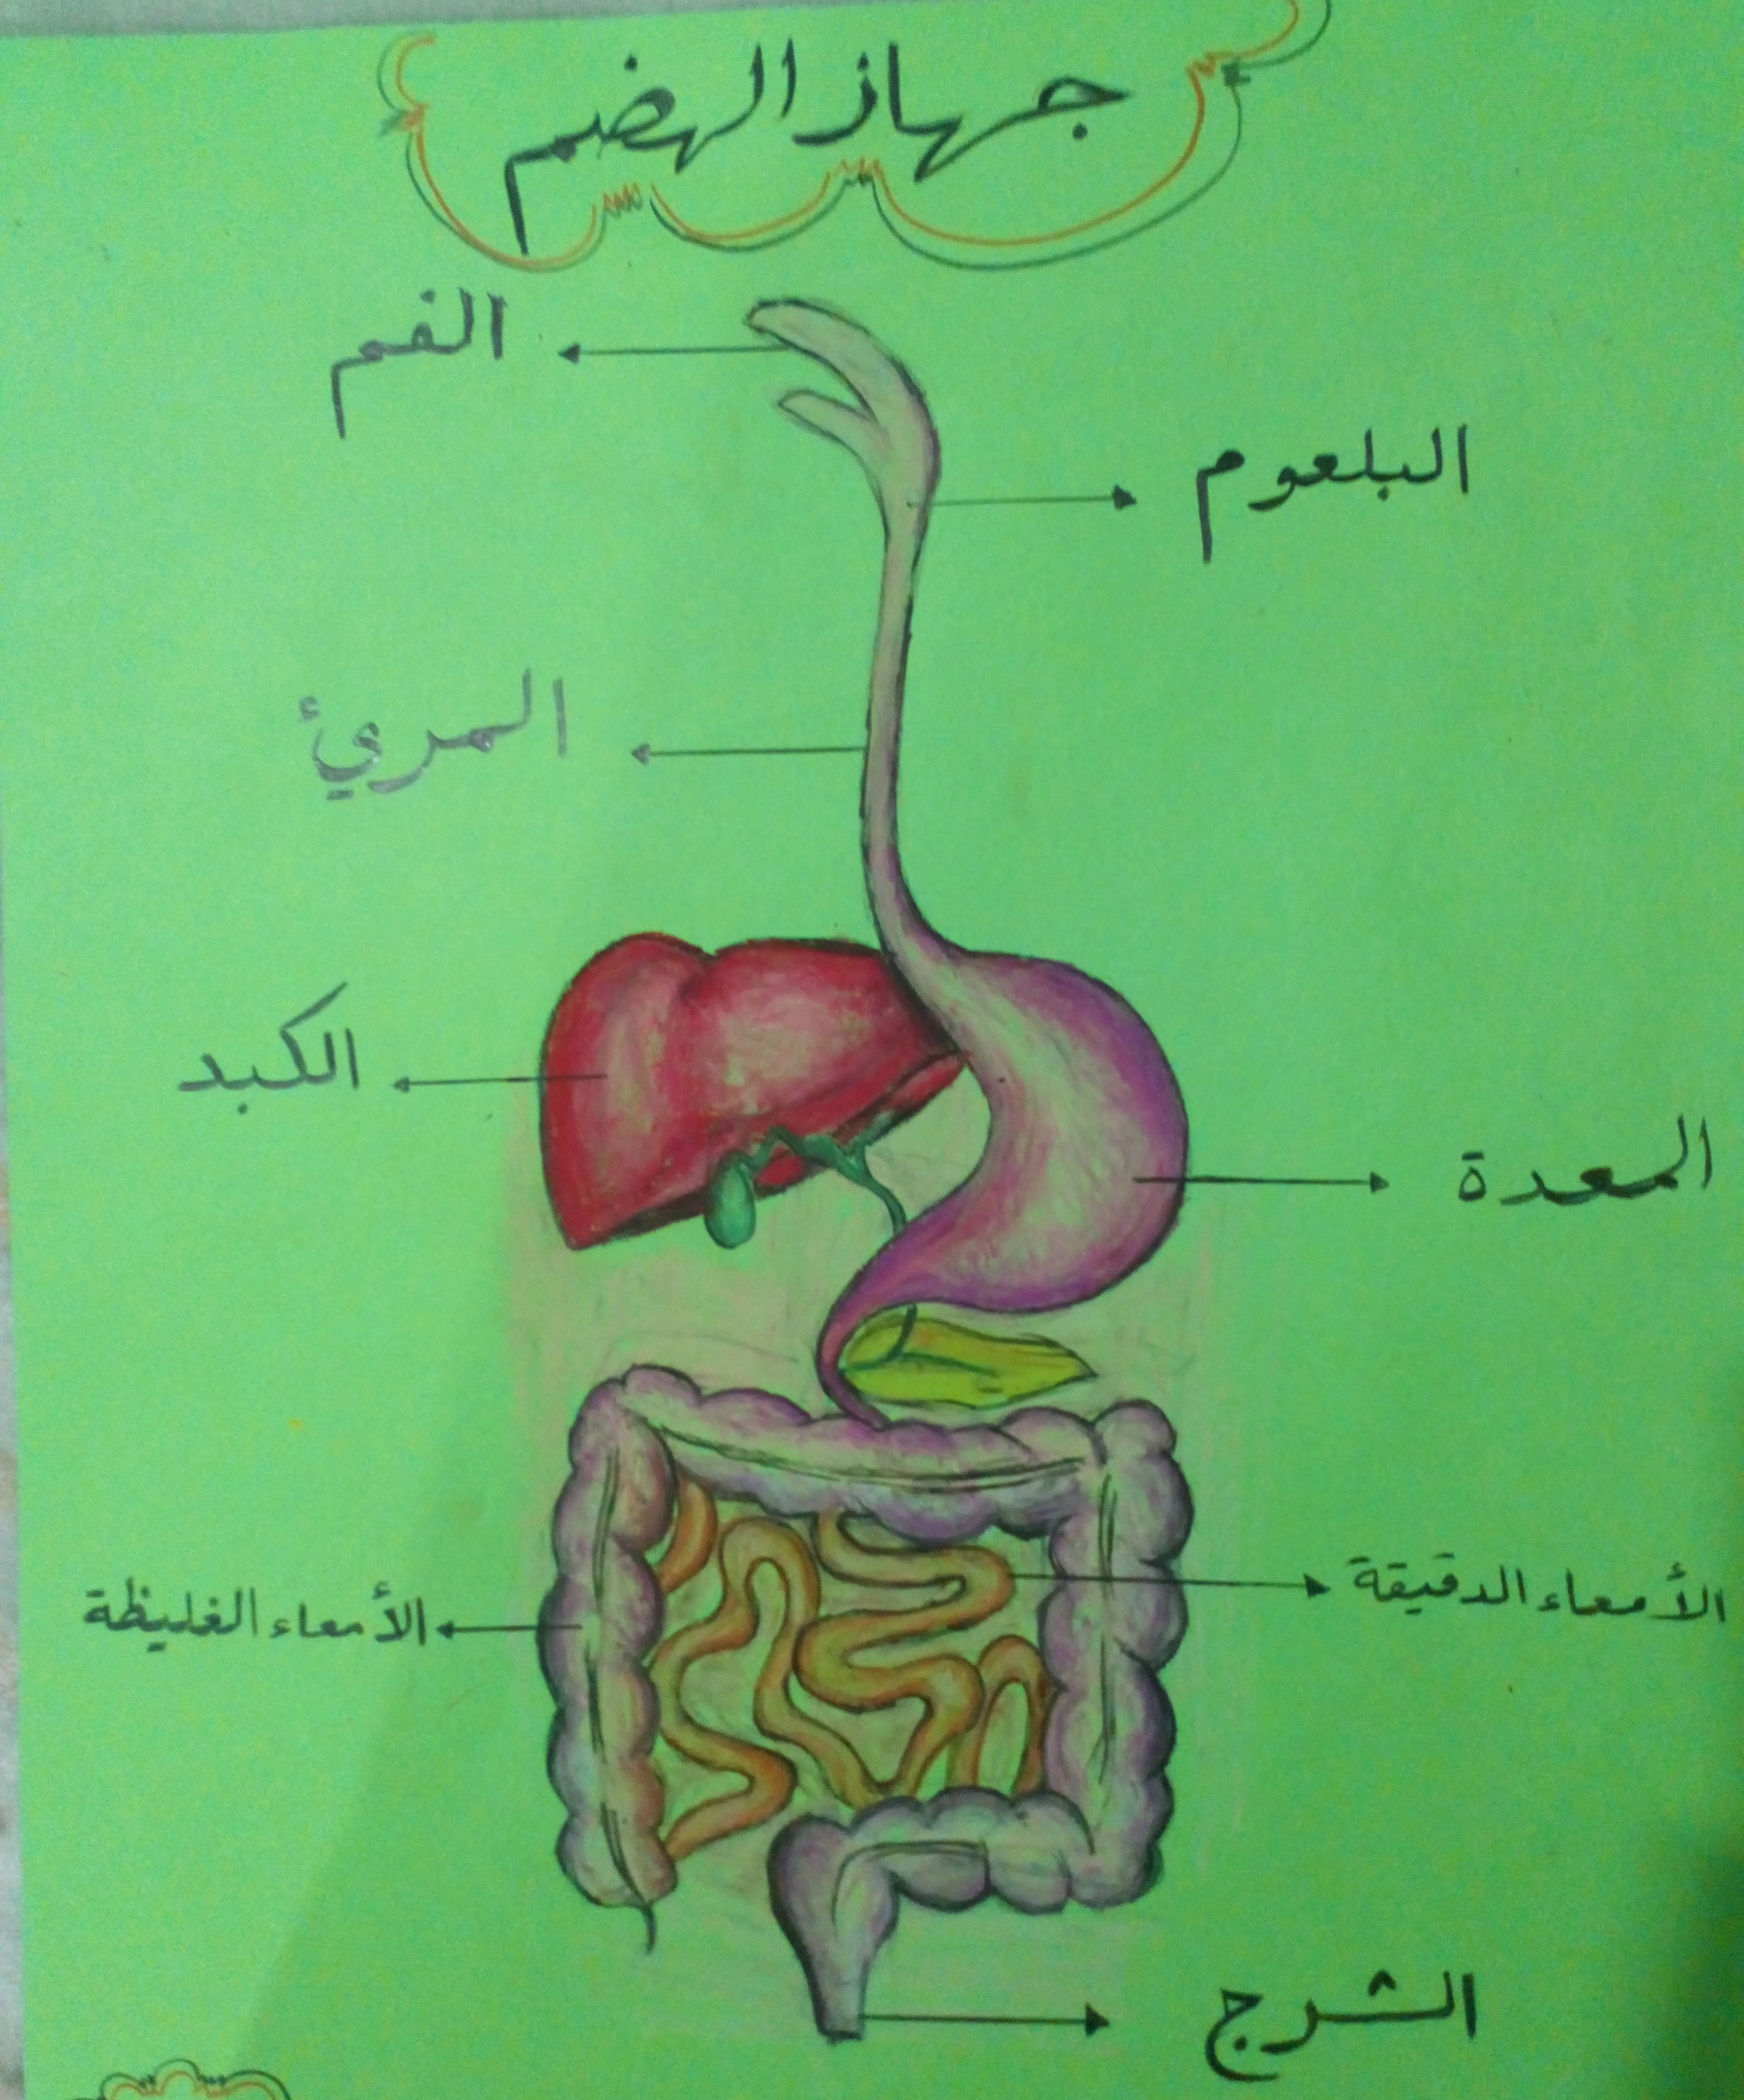 جهاز الهضم
الفم
البلعوم
المريئ
الكبد
المعدة
الأمعاء الدقيقة
الأمعاء الغليظة
الشرج